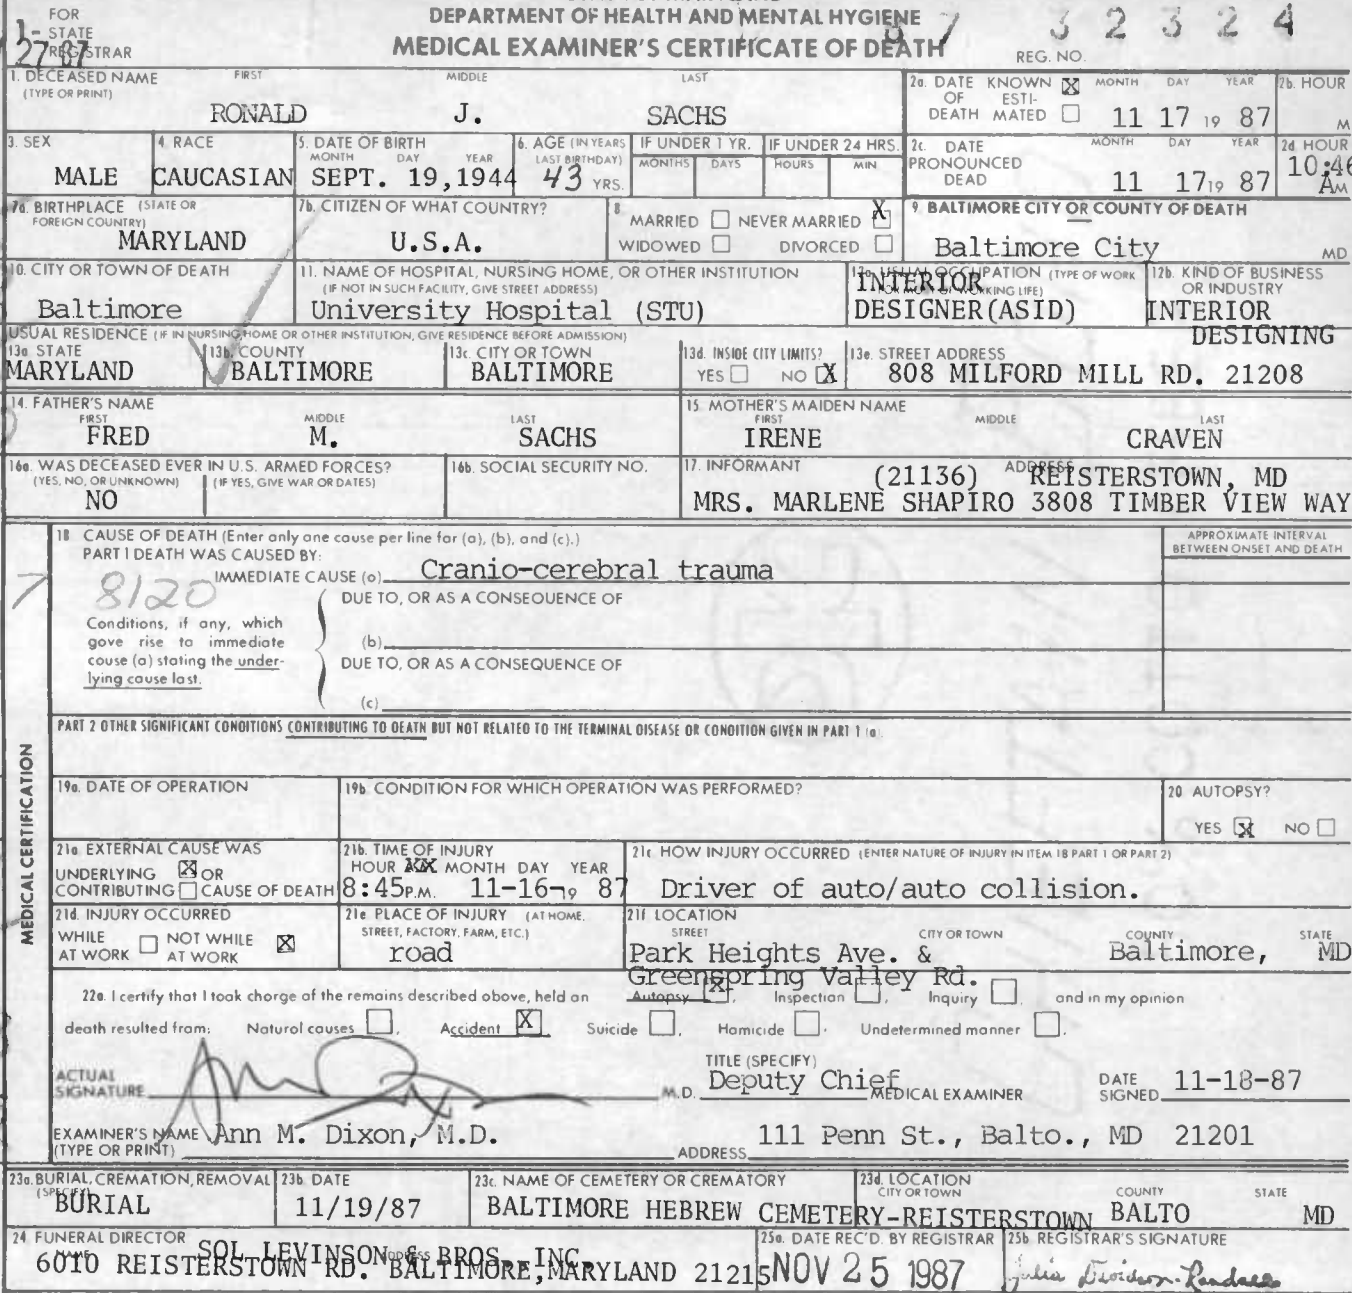 FOR
1- STATE
REGISTRAR
27 87
DEPARTMENT OF HEALTH AND MENTAL HYGIENE
MEDICAL EXAMINER'S CERTIFICATE OF DEATH
87 32324
REG. NO.
1. DECEASED NAME FIRST MIDDLE LAST
(TYPE OR PRINT)
RONALD J. SACHS
2a. DATE KNOWN [X] MONTH DAY YEAR
OF ESTI-
DEATH MATED 11 17 19 87
2b. HOUR
M
3. SEX
MALE
4. RACE
CAUCASIAN
5. DATE OF BIRTH
MONTH DAY YEAR
SEPT. 19,1944
6. AGE (IN YEARS
LAST BIRTHDAY)
43 YRS.
IF UNDER 1 YR.
MONTHS DAYS
IF UNDER 24 HRS.
HOURS MIN
2c. DATE MONTH DAY YEAR
PRONOUNCED
DEAD 11 17 19 87
2d HOUR
10:46
AM
7a. BIRTHPLACE (STATE OR
FOREIGN COUNTRY)
MARYLAND
7b. CITIZEN OF WHAT COUNTRY?
U.S.A.
8
MARRIED NEVER MARRIED X
WIDOWED DIVORCED
9. BALTIMORE CITY OR COUNTY OF DEATH
Baltimore City MD
10. CITY OR TOWN OF DEATH
Baltimore
11. NAME OF HOSPITAL, NURSING HOME, OR OTHER INSTITUTION
(IF NOT IN SUCH FACILITY, GIVE STREET ADDRESS)
University Hospital (STU)
12a. USUAL OCCUPATION (TYPE OF WORK
FOR MOST OF WORKING LIFE)
INTERIOR
DESIGNER(ASID)
12b. KIND OF BUSINESS
OR INDUSTRY
INTERIOR
DESIGNING
USUAL RESIDENCE (IF IN NURSING HOME OR OTHER INSTITUTION, GIVE RESIDENCE BEFORE ADMISSION)
13a STATE
MARYLAND
13b. COUNTY
BALTIMORE
13c. CITY OR TOWN
BALTIMORE
13d. INSIDE CITY LIMITS?
YES NO X
13e. STREET ADDRESS
808 MILFORD MILL RD. 21208
14. FATHER'S NAME
FIRST MIDDLE LAST
FRED M. SACHS
15. MOTHER'S MAIDEN NAME
FIRST MIDDLE LAST
IRENE CRAVEN
16a. WAS DECEASED EVER IN U.S. ARMED FORCES?
(YES, NO, OR UNKNOWN) (IF YES, GIVE WAR OR DATES)
NO
16b. SOCIAL SECURITY NO.
17. INFORMANT ADDRESS
(21136) REISTERSTOWN, MD
MRS. MARLENE SHAPIRO 3808 TIMBER VIEW WAY
MEDICAL CERTIFICATION
18 CAUSE OF DEATH (Enter only one cause per line for (a), (b), and (c).)
PART I DEATH WAS CAUSED BY:
APPROXIMATE INTERVAL
BETWEEN ONSET AND DEATH
IMMEDIATE CAUSE (a) Cranio-cerebral trauma
8120
DUE TO, OR AS A CONSEQUENCE OF
Conditions, if any, which
gave rise to immediate
cause (a) stating the under-
lying cause last.
(b)
DUE TO, OR AS A CONSEQUENCE OF
(c)
PART 2 OTHER SIGNIFICANT CONDITIONS CONTRIBUTING TO DEATH BUT NOT RELATED TO THE TERMINAL DISEASE OR CONDITION GIVEN IN PART 1 (a).
19a. DATE OF OPERATION
19b CONDITION FOR WHICH OPERATION WAS PERFORMED?
20 AUTOPSY?
YES X NO
21a EXTERNAL CAUSE WAS
UNDERLYING X OR
CONTRIBUTING CAUSE OF DEATH
21b. TIME OF INJURY
HOUR XX MONTH DAY YEAR
8:45 P.M. 11-16-19 87
21c HOW INJURY OCCURRED (ENTER NATURE OF INJURY IN ITEM 18 PART 1 OR PART 2)
Driver of auto/auto collision.
21d. INJURY OCCURRED
WHILE NOT WHILE X
AT WORK AT WORK
21e PLACE OF INJURY (AT HOME,
STREET, FACTORY, FARM, ETC.)
road
21f LOCATION
STREET CITY OR TOWN COUNTY STATE
Park Heights Ave. & Baltimore, MD
Greenspring Valley Rd.
22a. I certify that I took charge of the remains described above, held an Autopsy X, Inspection, Inquiry and in my opinion
death resulted from: Natural causes, Accident X, Suicide, Homicide, Undetermined manner.
TITLE (SPECIFY)
ACTUAL
SIGNATURE M.D. Deputy Chief MEDICAL EXAMINER DATE
SIGNED 11-18-87
EXAMINER'S NAME Ann M. Dixon, M.D.
(TYPE OR PRINT)
ADDRESS 111 Penn St., Balto., MD 21201
23a. BURIAL, CREMATION, REMOVAL
(SPECIFY)
BURIAL
23b DATE
11/19/87
23c. NAME OF CEMETERY OR CREMATORY
BALTIMORE HEBREW CEMETERY-REISTERSTOWN
23d. LOCATION
CITY OR TOWN COUNTY STATE
BALTO MD
24 FUNERAL DIRECTOR
NAME ADDRESS
SOL LEVINSON & BROS. INC.
6010 REISTERSTOWN RD. BALTIMORE, MARYLAND 21215
25a. DATE REC'D. BY REGISTRAR
NOV 25 1987
25b REGISTRAR'S SIGNATURE
Julia Davidson-Randall